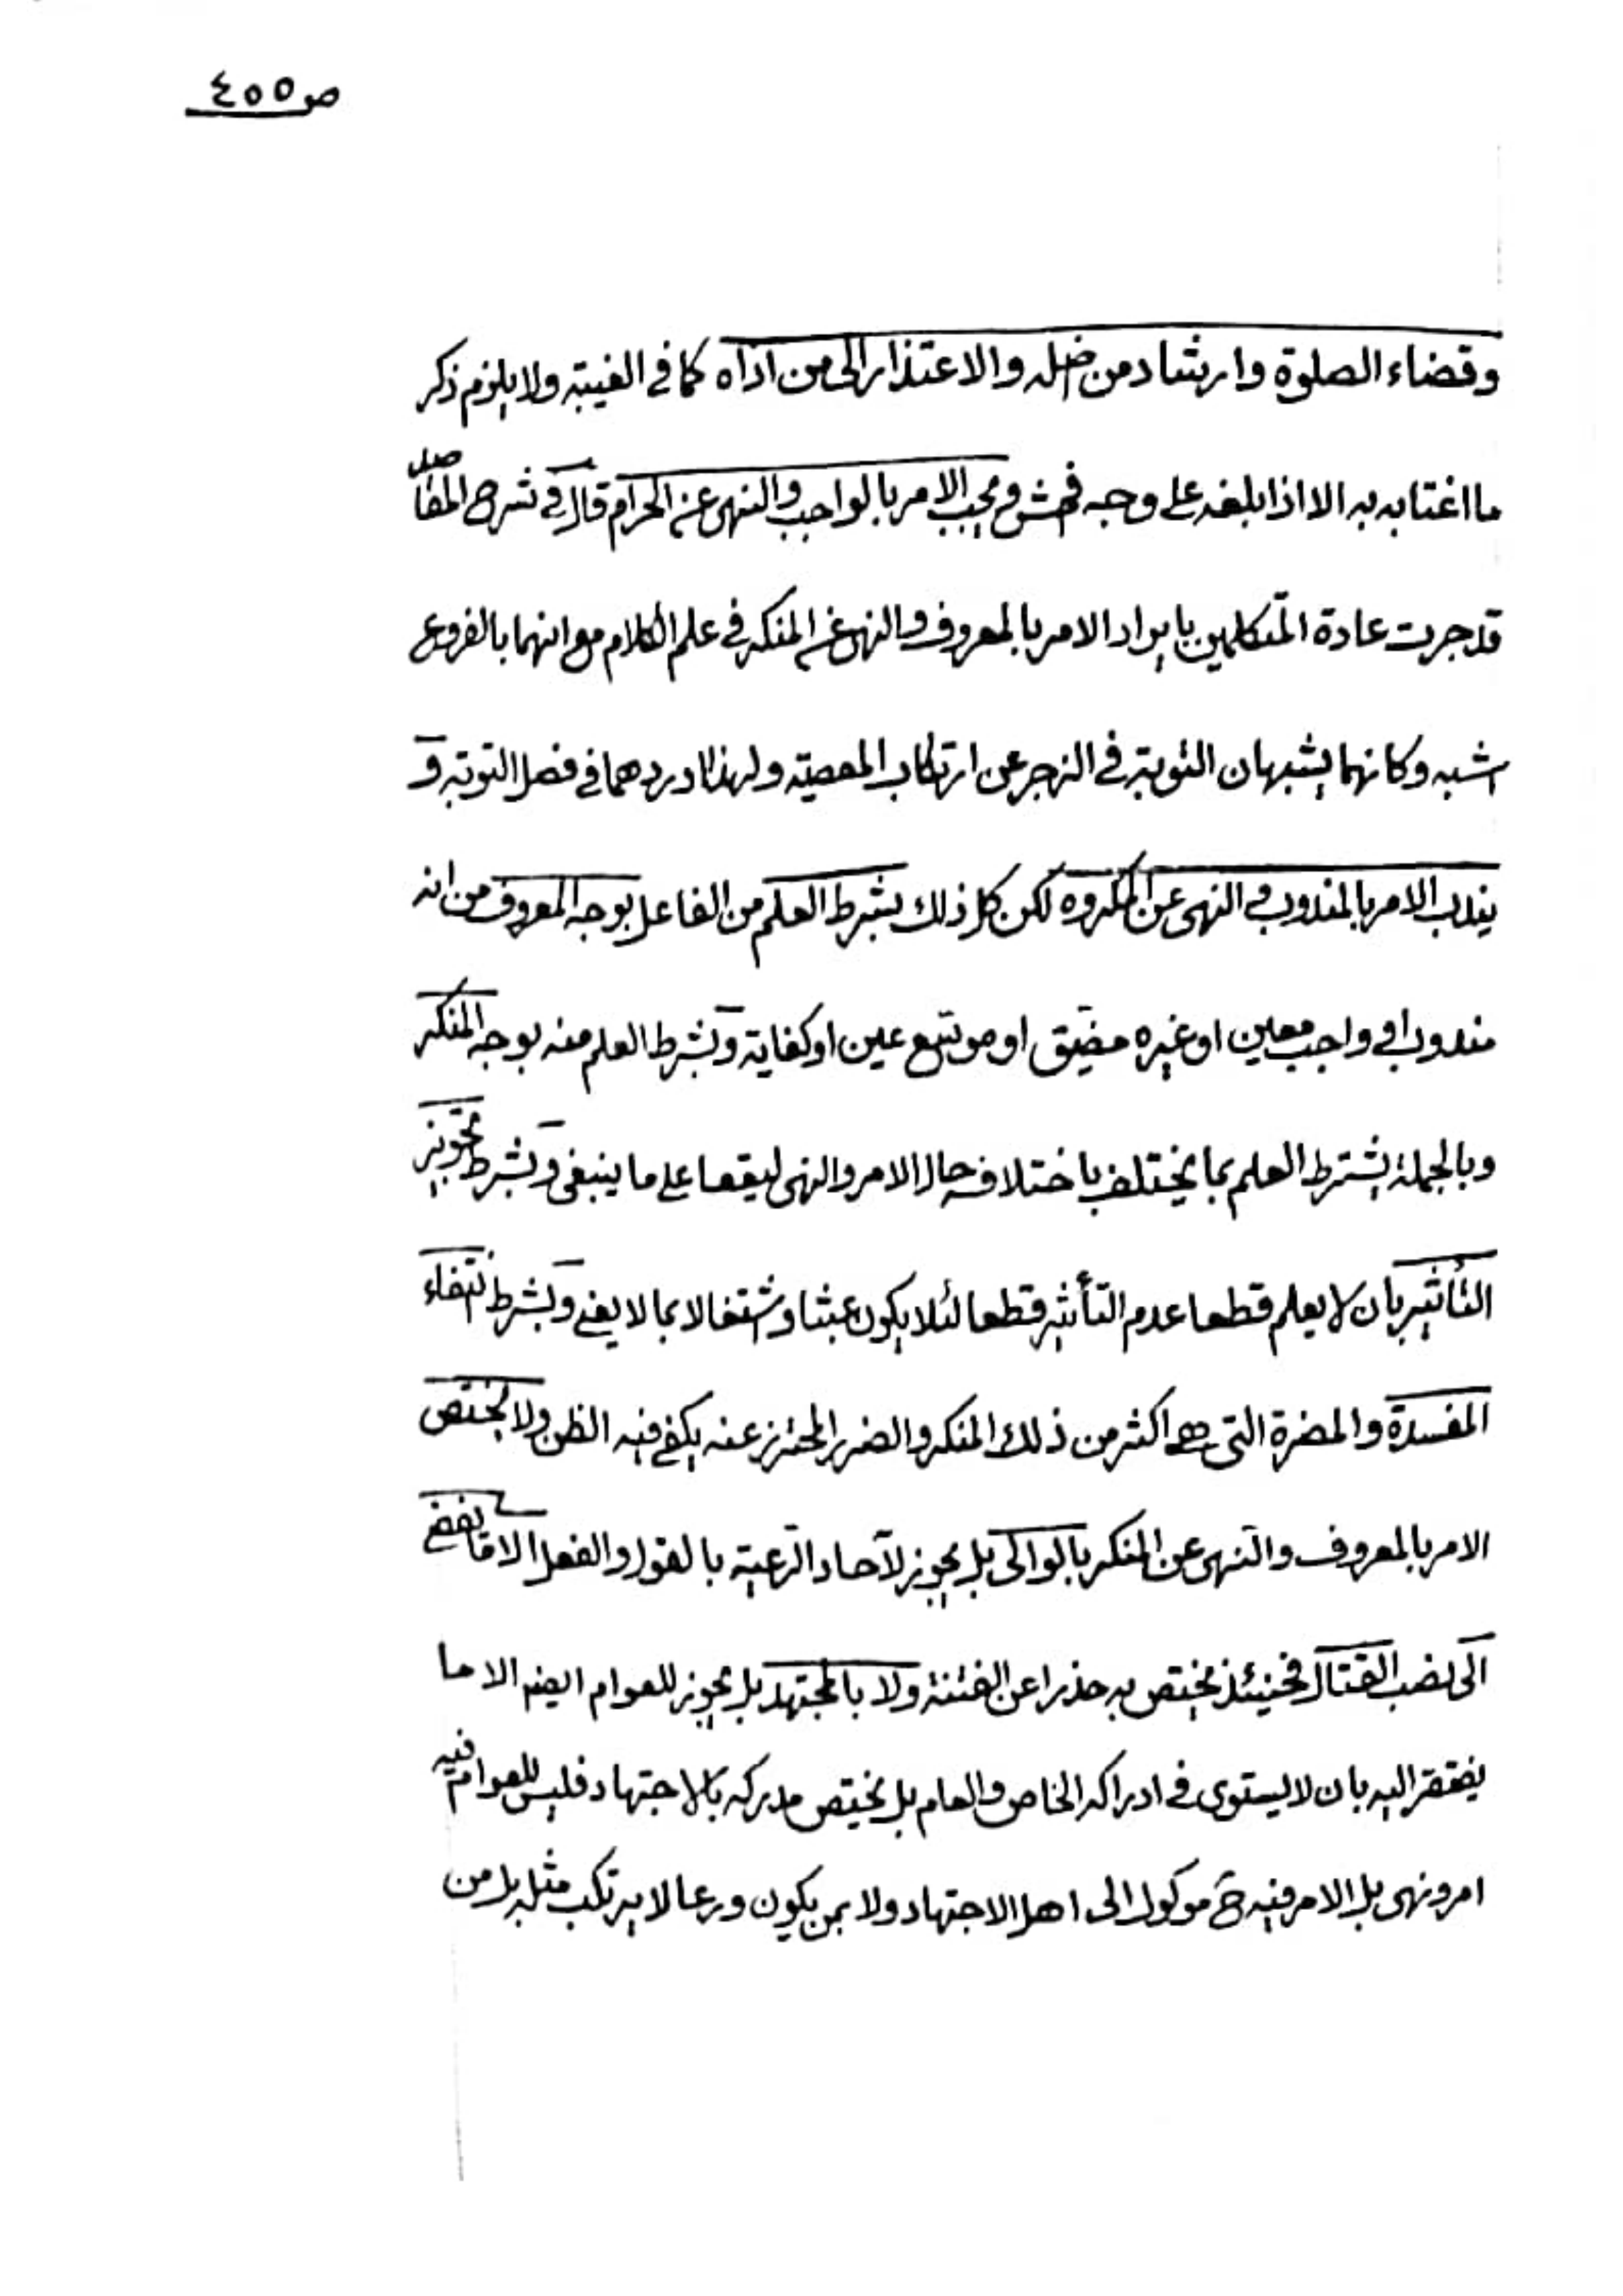 ص ٤٥٥
وقضاء الصلوة وارشاد من ضلله والاعتذار الى من اذاه كما فى الغيبة ولا يلزم ذكر
ما اغتابه به الا اذا بلغه على وجه فحش ويجب الامر بالواجب والنهى عن الحرام قال فى شرح المقاصد
قد جرت عادة المتكلمين بايراد الامر بالمعروف والنهى عن المنكر فى علم الكلام مع انهما بالفروع
اشبه وكانهما يشبهان التوبة فى الزجر عن ارتكاب المعصية ولهذا دردهما فى فصل التوبة و
يندب الامر بالمندوب والنهى عن المكروه لكن كل ذلك بشرط العلم من الفاعل بوجه المعروف من انه
مندوب او واجب معين او غيره مضيق او موسع عين او كفاية وبشرط العلم منه بوجه المنكر
وبالجملة يشترط العلم بما يختلف باختلافه حال الامر والنهى ليقعا على ما ينبغى وبشرط تجويز
التأثير بان لا يعلم قطعا عدم التأثير قطعا لئلا يكون عبثا واشتغالا بما لا يعنى وبشرط انتفاء
المفسدة والمضرة التى هى اكثر من ذلك المنكر والضرر المحترز عنه يكفى فيه الظن ولا يختص
الامر بالمعروف والنهى عن المنكر بالوالى بل يجوز لآحاد الرعية بالقول والفعل الا ما يفضى
الى نصب القتال فحينئذ يختص به حذرا عن الفتنة ولا بالمجتهد بل يجوز للعوام ايضا الا ما
يفتقر اليه بان لا يستوى فى ادراكه الخاص والعام بل يختص مدركه بالاجتهاد فليس للعوام فيه
امر ونهى بل الامر فيه ح موكول الى اهل الاجتهاد ولا بمن يكون ورعا لا يرتكب مثله بل من